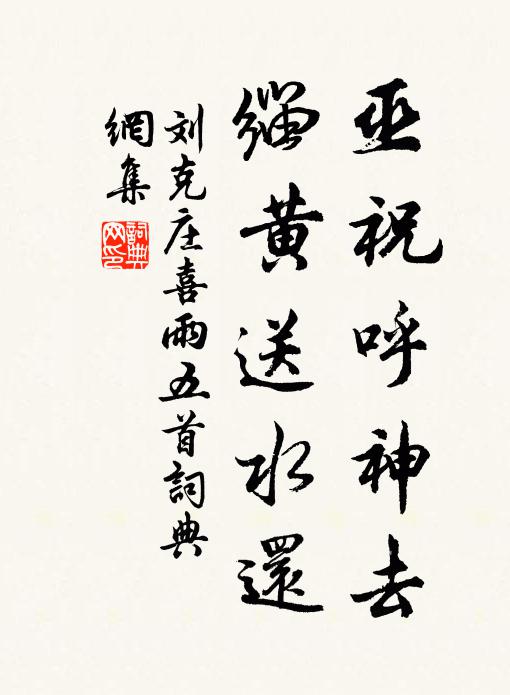 巫祝呼神去
缁黄送水還
刘克庄喜雨五首詞典
網集
詞典
网印